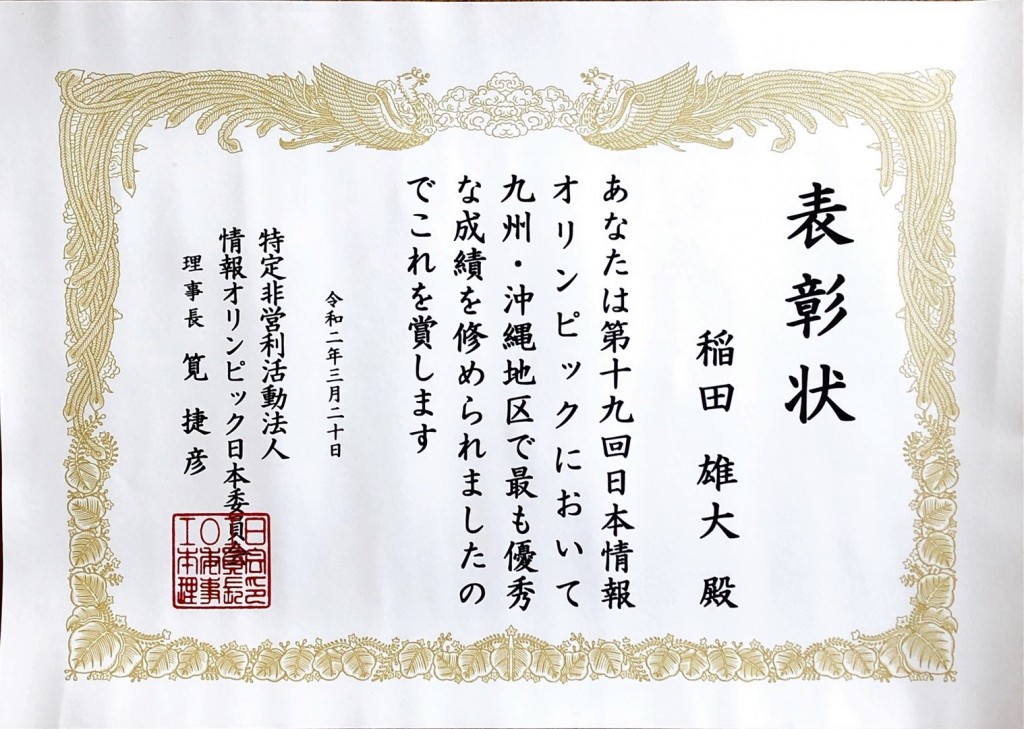 表彰状
稲田 雄大 殿
あなたは第十九回日本情報
オリンピックにおいて
九州・沖縄地区で最も優秀
な成績を修められましたの
でこれを賞します
令和二年三月二十日
特定非営利活動法人
情報オリンピック日本委員会
理事長 筧 捷彦